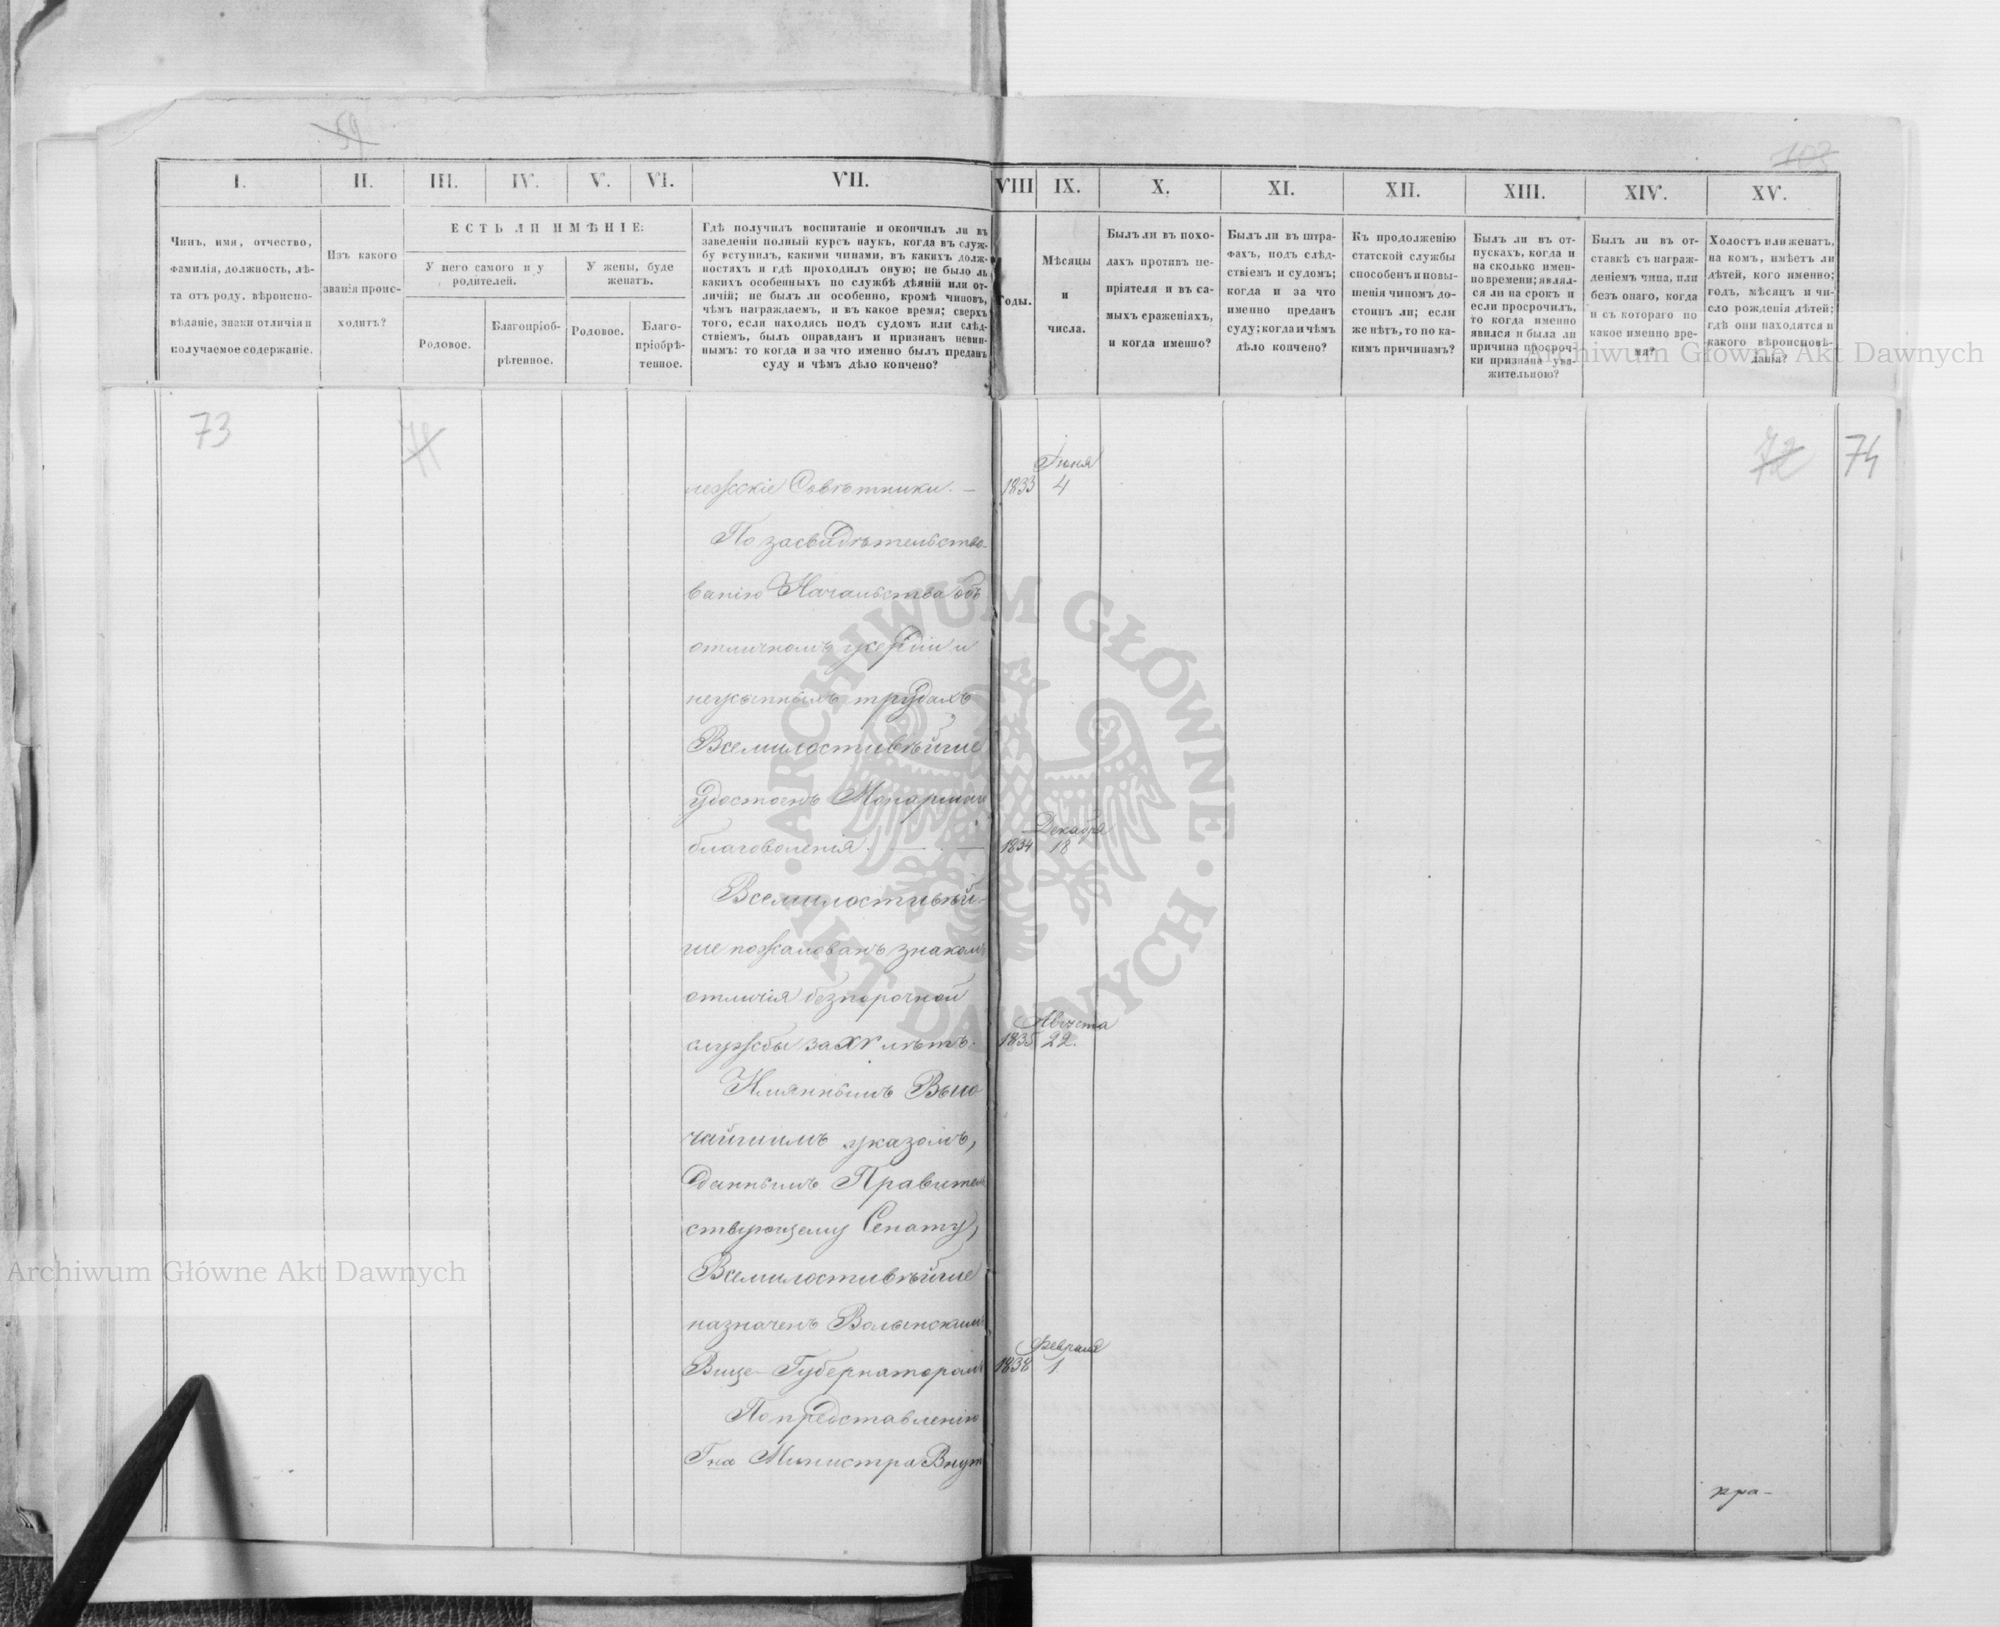 59
103
I. II. III. IV. V. VI. VII. VIII IX. X. XI. XII. XIII. XIV. XV.
Чинъ, имя, отчество,
фамилія, должность, лѣ-
та отъ роду, вѣроиспо-
вѣданіе, знаки отличія и
получаемое содержаніе.
Изъ какого
званія проис-
ходитъ?
ЕСТЬ ЛИ ИМѢНІЕ:
У него самого и у
родителей.
У жены, буде
женатъ.
Родовое.
Благопріоб-
рѣтенное.
Родовое.
Благо-
пріобрѣ-
тенное.
Гдѣ получилъ воспитаніе и окончилъ ли въ
заведеніи полный курсъ наукъ, когда въ служ-
бу вступилъ, какими чинами, въ какихъ долж-
ностяхъ и гдѣ проходилъ оную; не было ль
какихъ особенныхъ по службѣ дѣяній или от-
личій; не былъ ли особенно, кромѣ чиновъ,
чѣмъ награждаемъ, и въ какое время; сверхъ
того, если находясь подъ судомъ или слѣд-
ствіемъ, былъ оправданъ и признанъ невин-
нымъ: то когда и за что именно былъ преданъ
суду и чѣмъ дѣло кончено?
Годы.
Мѣсяцы
и
числа.
Былъ ли въ похо-
дахъ противъ не-
пріятеля и въ са-
мыхъ сраженіяхъ,
и когда именно?
Былъ ли въ штра-
фахъ, подъ слѣд-
ствіемъ и судомъ;
когда и за что
именно преданъ
суду; когда и чѣмъ
дѣло кончено?
Къ продолженію
статской службы
способенъ и повы-
шенія чиномъ до-
стоинъ ли; если
же нѣтъ, то по ка-
кимъ причинамъ?
Былъ ли въ от-
пускахъ, когда и
на сколько имен-
но времени; являл-
ся ли на срокъ и
если просрочилъ,
то когда именно
явился и была ли
причина просроч-
ки признана ува-
жительною?
Былъ ли въ от-
ставкѣ съ награж-
деніемъ чина, или
безъ онаго, когда
и съ котораго по
какое именно вре-
мя?
Холостъ или женатъ,
на комъ, имѣетъ ли
дѣтей, кого именно;
годъ, мѣсяцъ и чи-
сло рожденія дѣтей;
гдѣ они находятся и
какого вѣроисповѣ-
данія?
Archiwum Główne Akt Dawnych
73
71
72
74
лежскіе Совѣтники. —
1833
Іюня
4
По засвидѣтельство-
ванію Начальства объ
отличномъ усердіи и
неусыпныхъ трудахъ
Всемилостивѣйше
удостоенъ Монаршаго
благоволенія. — —
1834
Декабря
18
Всемилостивѣй-
ше пожалованъ знакомъ
отличія безпорочной
службы за XV лѣтъ.
1835
Августа
22.
Имяннымъ Высо
чайшимъ указомъ,
даннымъ Правитель
ствующему Сенату,
Всемилостивѣйше
назначенъ Волынскимъ
Вице-Губернаторомъ
1838
Февраля
1
По представленію
Гна Министра Внут
пра-
ARCHIWUM GŁÓWNE · AKT DAWNYCH ·
Archiwum Główne Akt Dawnych